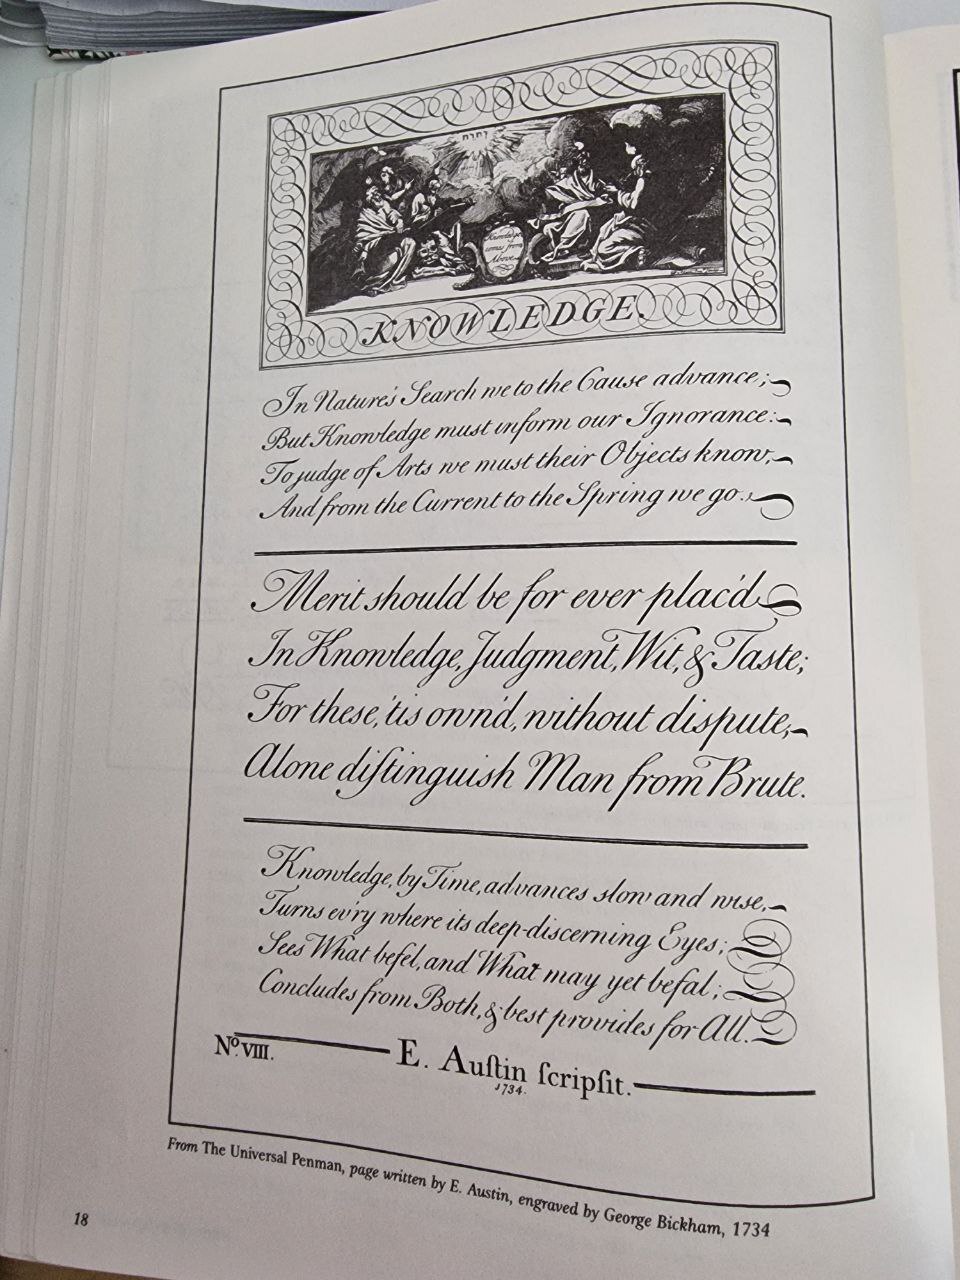 Knowledge
comes from
Above
KNOWLEDGE.
In Nature's Search we to the Cause advance;
But Knowledge must inform our Ignorance:
To judge of Arts we must their Objects know,
And from the Current to the Spring we go.
Merit should be for ever plac'd
In Knowledge, Judgment, Wit, & Taste;
For these, 'tis own'd, without dispute,
Alone diſtinguish Man from Brute.
Knowledge, by Time, advances slow and wise,
Turns ev'ry where its deep-discerning Eyes;
Sees What befel, and What may yet befal;
Concludes from Both, & best provides for All.
No. VIII. E. Auſtin ſcripſit.
1734.
From The Universal Penman, page written by E. Austin, engraved by George Bickham, 1734
18